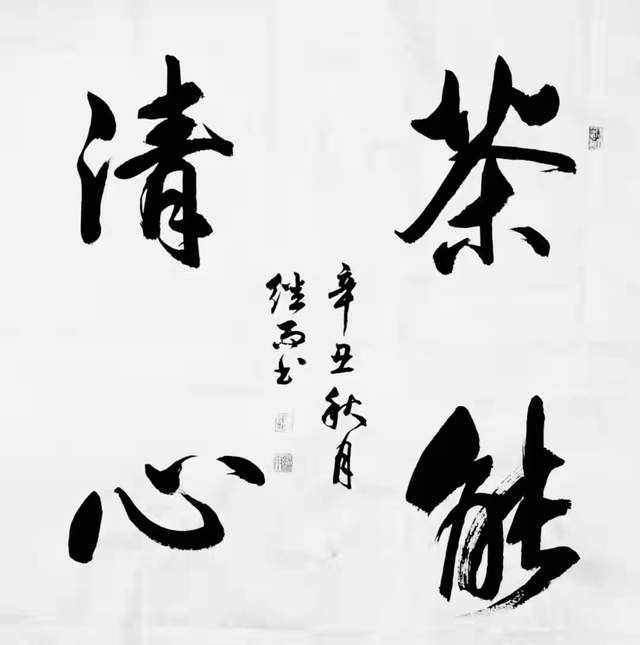 茶能
清心
辛丑秋月
继雨书